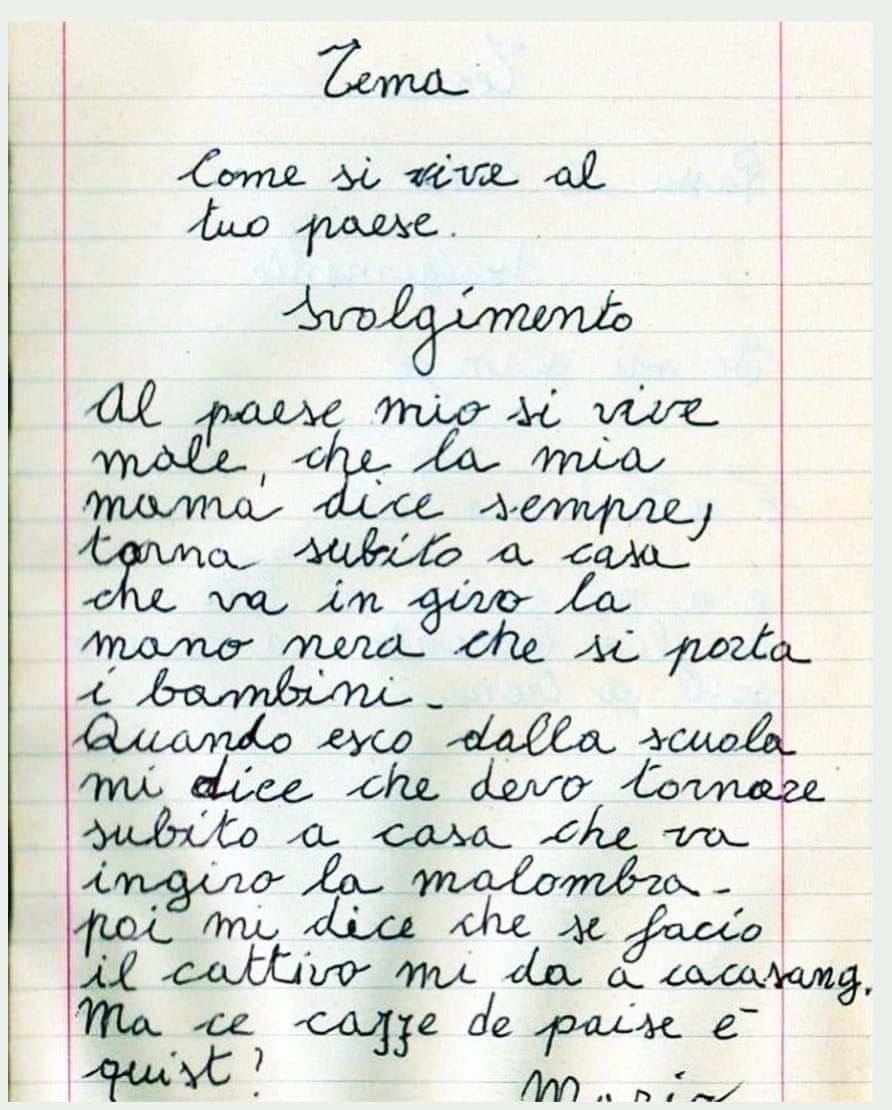 Tema
Come si vive al
tuo paese.
Svolgimento
Al paese mio si vive
male, che la mia
mamá dice sempre,
torna subito a casa
che va in giro la
mano nera che si porta
i bambini.
Quando esco dalla scuola
mi dice che devo tornare
subito a casa che va
ingiro la malombra.
poi mi dice che se facio
il cattivo mi da a cacasang.
Ma ce cazze de paise è
quist?